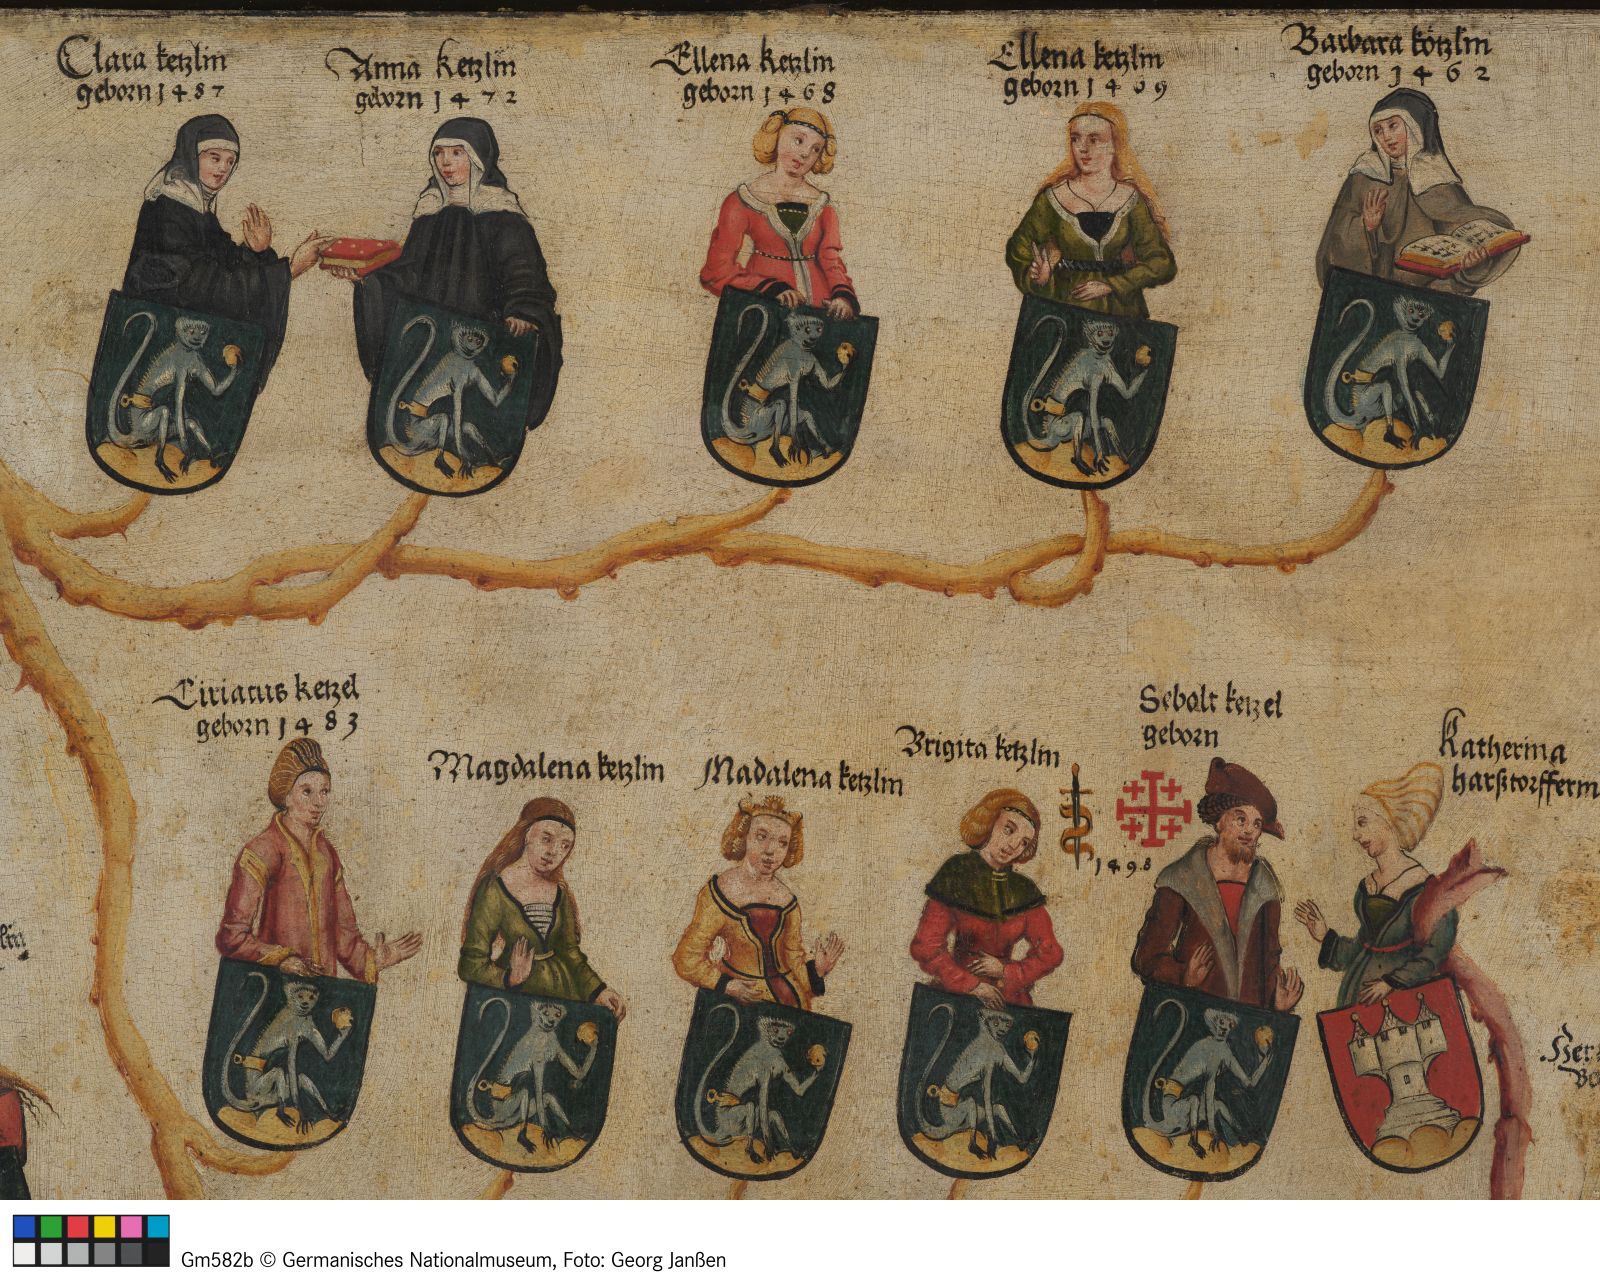 Clara ketzlin
geborn 1487
Anna ketzlin
geborn 1472
Ellena ketzlin
geborn 1468
Ellena ketzlin
geborn 1469
Barbara kötzlin
geborn 1462
Ciriacus ketzel
geborn 1483
Magdalena ketzlin
Madalena ketzlin
Brigita ketzlin
1498
Sebolt ketzel
geborn
Katherina
harßtorfferin
lin
Gm582b © Germanisches Nationalmuseum, Foto: Georg Janßen